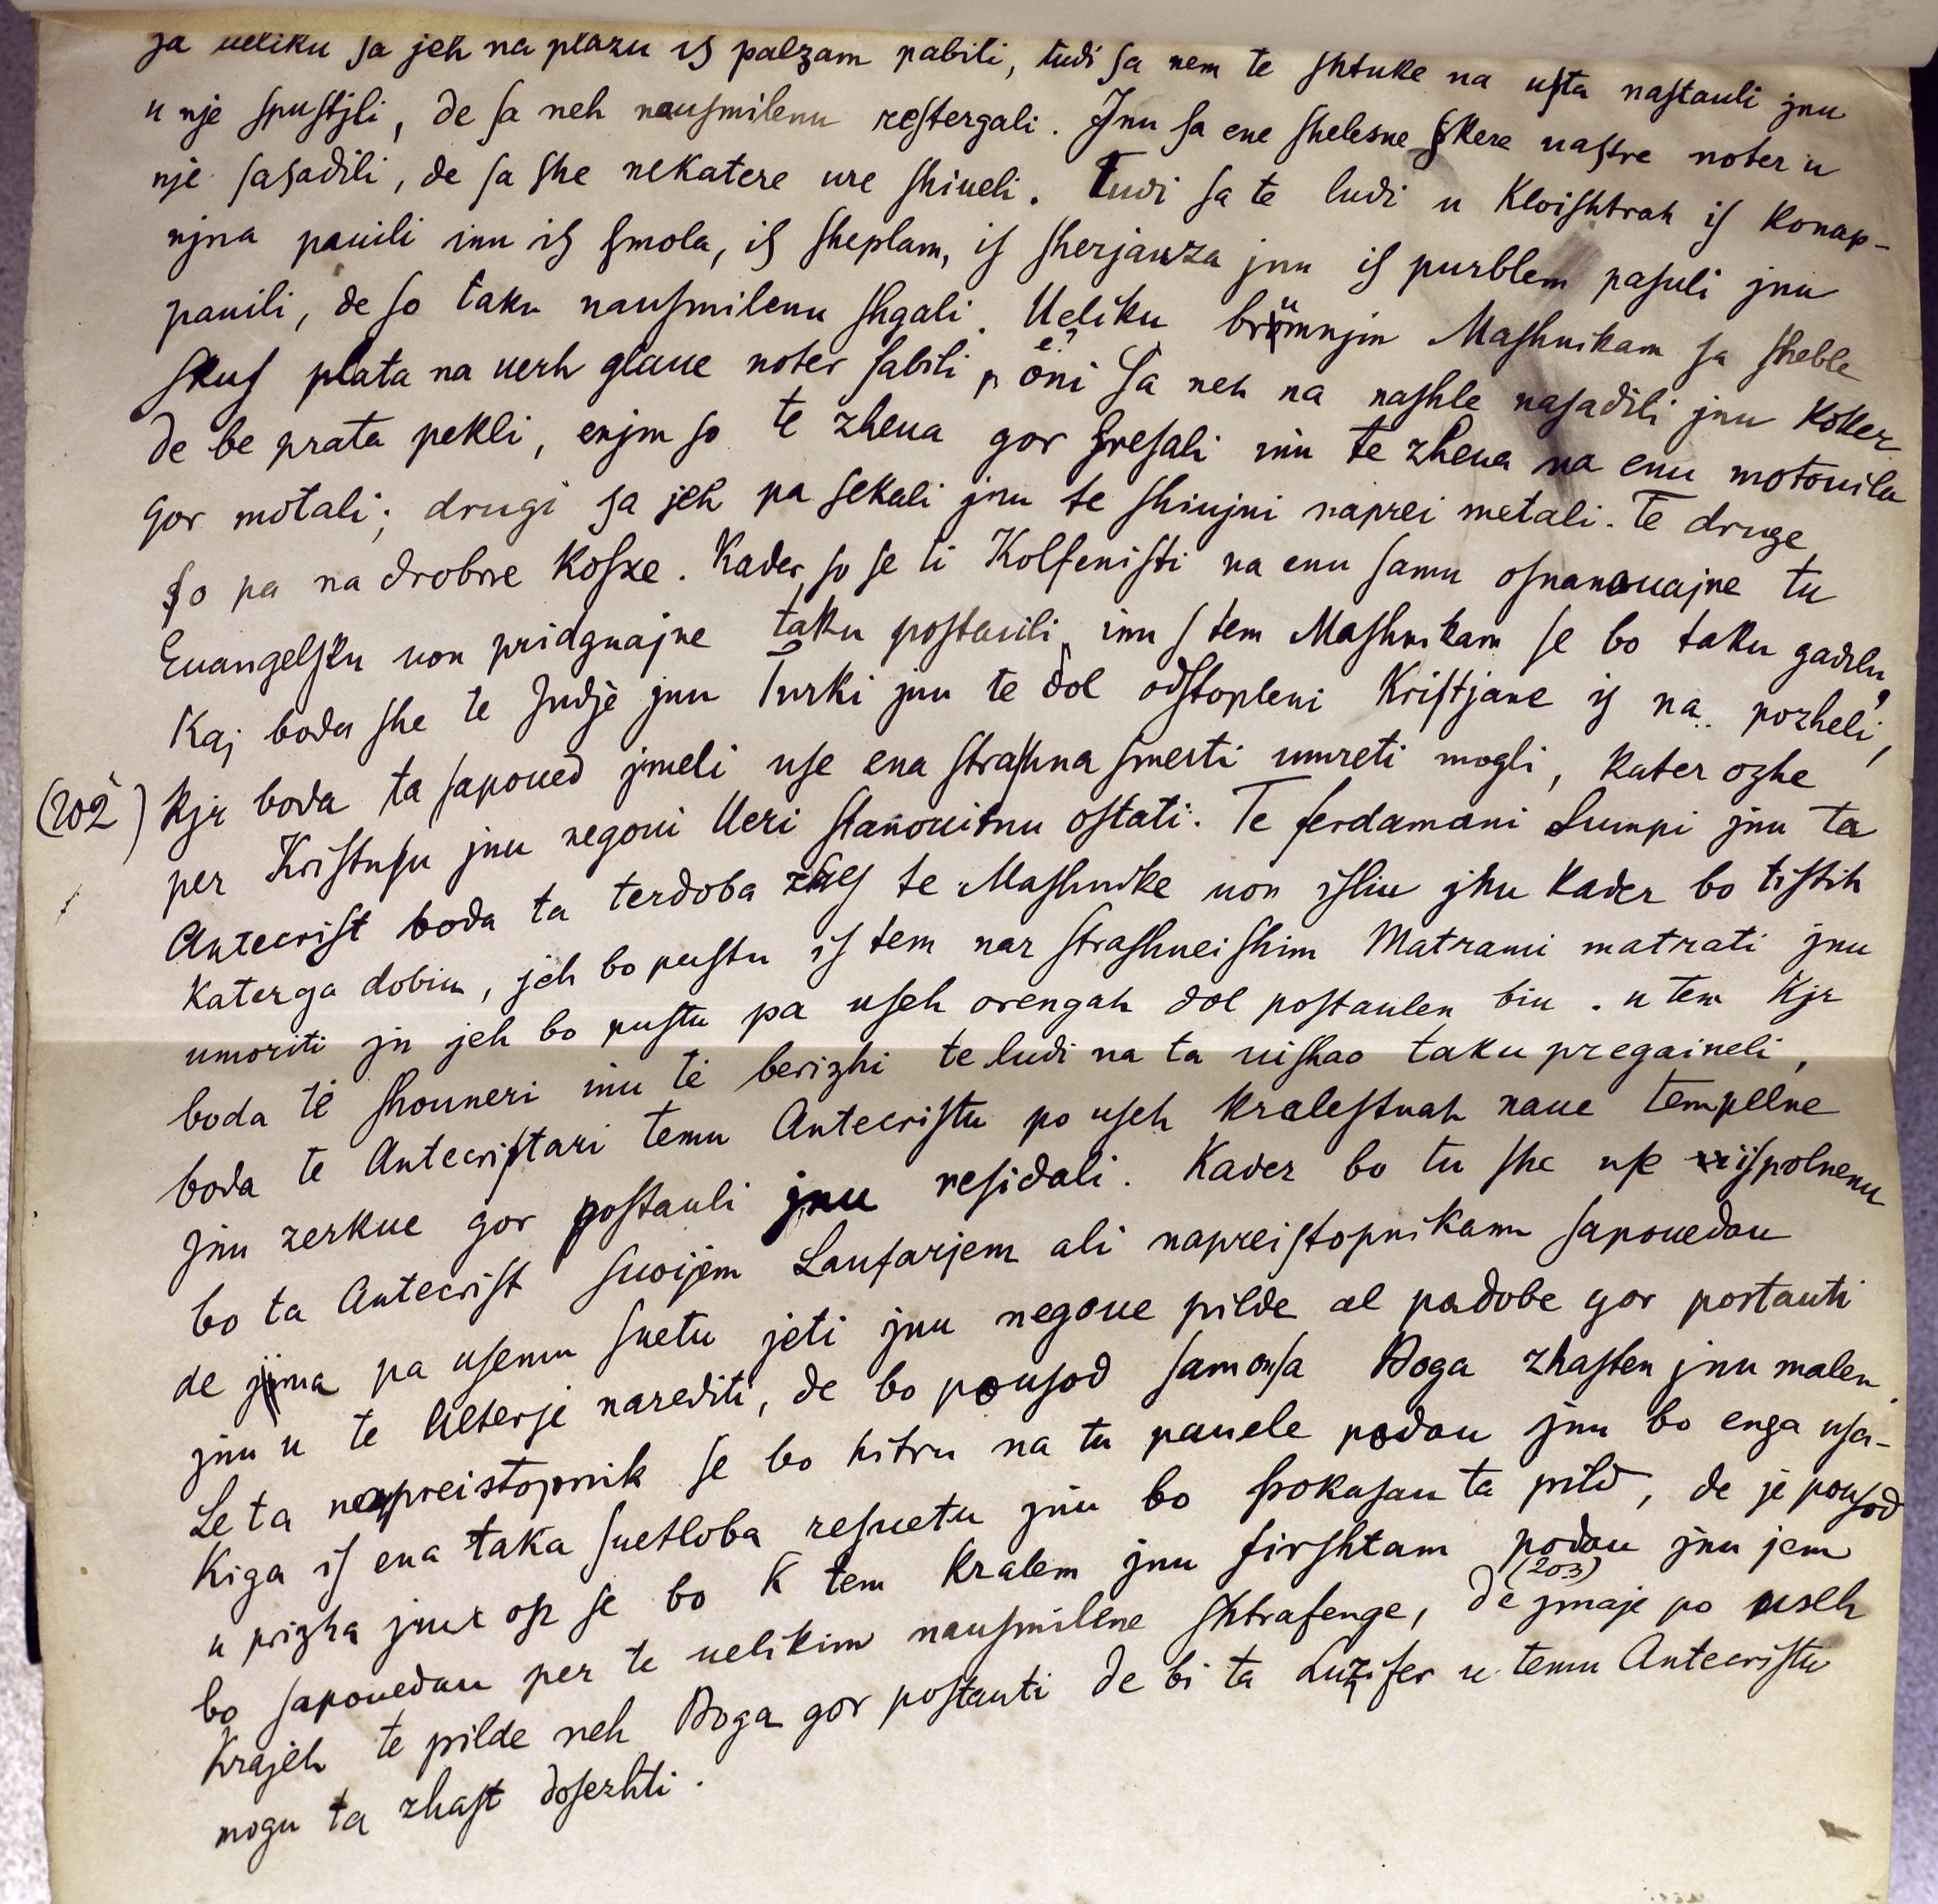 ſa ueliku ſa jeh na plazu iſ palzam pabili, tudi ſa nem te shtuke na uſta naſtauli jnu
u nje ſpuſtjli, de ſa neh nauſmilenu reſtergali. Jnu ſa ene shelesne ſkere uaſtre noter u
nje ſaſadili, de ſa ſhe nekatere ure ſhiueli. Tudi ſa te ludi u Kloiſhtrah iſ Konap-
njna pauili inu iſ ſmola, iſ ſheplam, iſ ſherjauza jnu iſ purblem paſuli jnu
pauili, de ſo taku nauſmilenu ſhgali. Ueliku brümnjm Maſhnikam ſa ſheble
ſkuſ plata na uerh glaue noter ſabili, oni ſa neh na naſhle naſadili jnu Koker
de be prata pekli, enjm ſo te zheua gor ſreſali inu te zheua na enu motouilu
gor motali; drugi ſa jeh pa ſekali jnu te ſhiujni naprei metali. Te druge
ſo pa na drobne Koſze. Kader ſo ſe ti Kolfeniſti na enu ſamu oſnanouajne tu
Euangelſku uon pridgnajne taku poſtauili inu ſ tem Maſhnikam ſe bo taku gadilu,
Kaj bodu ſhe te Judje jnu Turki jnu te dol odſtopleni Kriſtjane iſ na.. pozheli,
(202) Kjr boda ta ſapoued jmeli uſe ena ſtraſhna ſmerti umreti mogli, kater ozhe
per Kriſtuſu jnu negoui Ueri ſtanouitnu oſtati. Te ferdamani Lumpi jnu ta
Antecriſt boda ta terdoba zhes te Maſhnike uon iſliu jnu Kader bo tiſtih
Katerga dobiu, jeh bo puſtu iſ tem nar ſtraſhneiſhim Matrami matrati jnu
umoriti jn jeh bo puſtu pa uſeh orengah dol poſtaulen biu. u tem Kjr
boda té ſhouneri inu té berizhi te ludi na ta uiſhao taku pregaineli,
boda te Antecriſtari temu Antecriſtu po uſeh Kraleſtuah naue tempelne
jnu zerkue gor poſtauli jnu reſidali. Kader bo tu ſhe uſe iſpolnenu
bo ta Antecriſt ſuoijem Laufarjem ali napreiſtopnikam ſapouedau
de jma pa uſemu ſuetu jeti jnu negoue pilde al podobe gor poſtauti
jnu u te Ueterje narediti, de bo pouſod ſamonſa Boga zhaſten jnu malen.
Le ta napreiſtopnik ſe bo hitru na tu pauele podau jnu bo enga uſa-
Kiga iſ ena taka ſuetloba reſuetu jnu bo ſpokaſau ta pild, de je pouſod
u prizha jnu oſr ſe bo K tem Kralem jnu firſhtam podau jnu jem
bo ſapouedau per te uelikim nauſmilene ſhtrafenge, (203) de jmaje po useh
Krajeh te pilde neh Boga gor poſtauti de bi ta Luzifer u temu Antecriſtu
mogu ta zhaſt doſezhti.